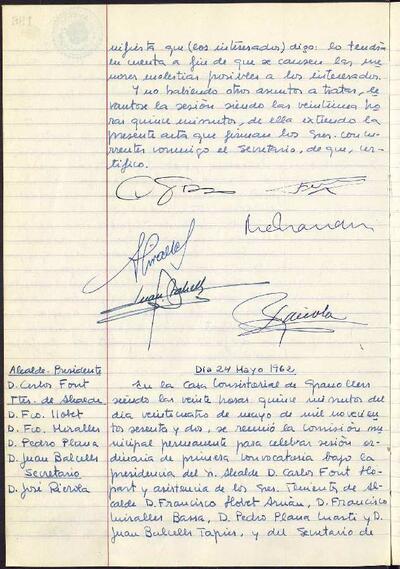 nifiesta que (los interesados) digo: lo tendrán
en cuenta a fin de que se causen las me
nores molestias posibles a los interesados.
Y no habiendo otros asuntos a tratar, se
levanta la sesión siendo las veintiuna ho
ras quince minutos, de ella extiendo la
presente acta que firman los Sres. concu
rrentes conmigo el Secretario, de que, cer
tifico.
Juan Balcells
Alcalde-Presidente
D. Carlos Font
Ttes. de Alcalde
D. Fco. Llobet
D. Fco. Miralles
D. Pedro Plana
D. Juan Balcells
Secretario
D. José Bierola
Día 24 Mayo 1962
En la Casa Consistorial de Granollers
siendo las veinte horas quince minutos del
día veinticuatro de mayo de mil novecien
tos sesenta y dos, se reunió la Comisión mu
nicipal permanente para celebrar sesión or
dinaria de primera convocatoria bajo la
presidencia del Sr. Alcalde D. Carlos Font Llo
part y asistencia de los Sres. Tenientes de Al
calde D. Francisco Llobet Arnán, D. Francisco
Miralles Bassa, D. Pedro Plana Martí y D.
Juan Balcells Tapies, y del Secretario de